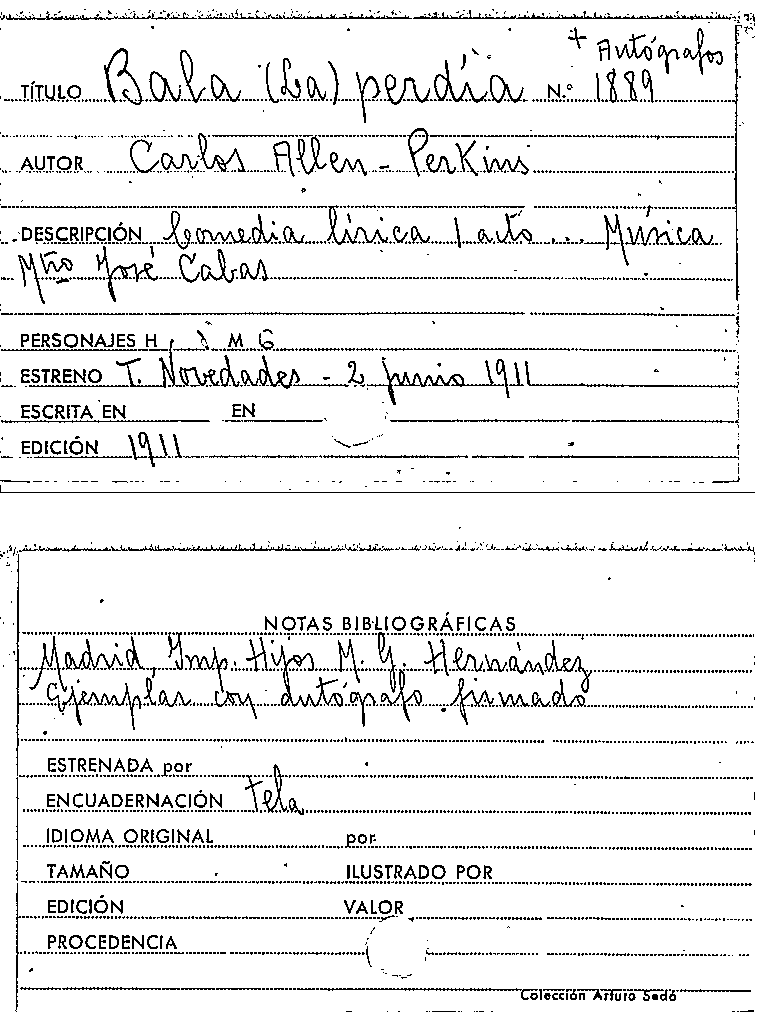 + Autógrafos
TÍTULO Bala (La) perdía N.º 1889
AUTOR Carlos Allen-Perkins
DESCRIPCIÓN Comedia lírica 1 acto ... Música
Mtro José Cabas
PERSONAJES H M 6
ESTRENO T. Novedades - 2 junio 1911
ESCRITA EN EN
EDICIÓN 1911
NOTAS BIBLIOGRÁFICAS
Madrid, Imp. Hijos M. G. Hernández
Ejemplar con autógrafo firmado
ESTRENADA por
ENCUADERNACIÓN tela
IDIOMA ORIGINAL por
TAMAÑO ILUSTRADO POR
EDICIÓN VALOR
PROCEDENCIA
Colección Arturo Sedó